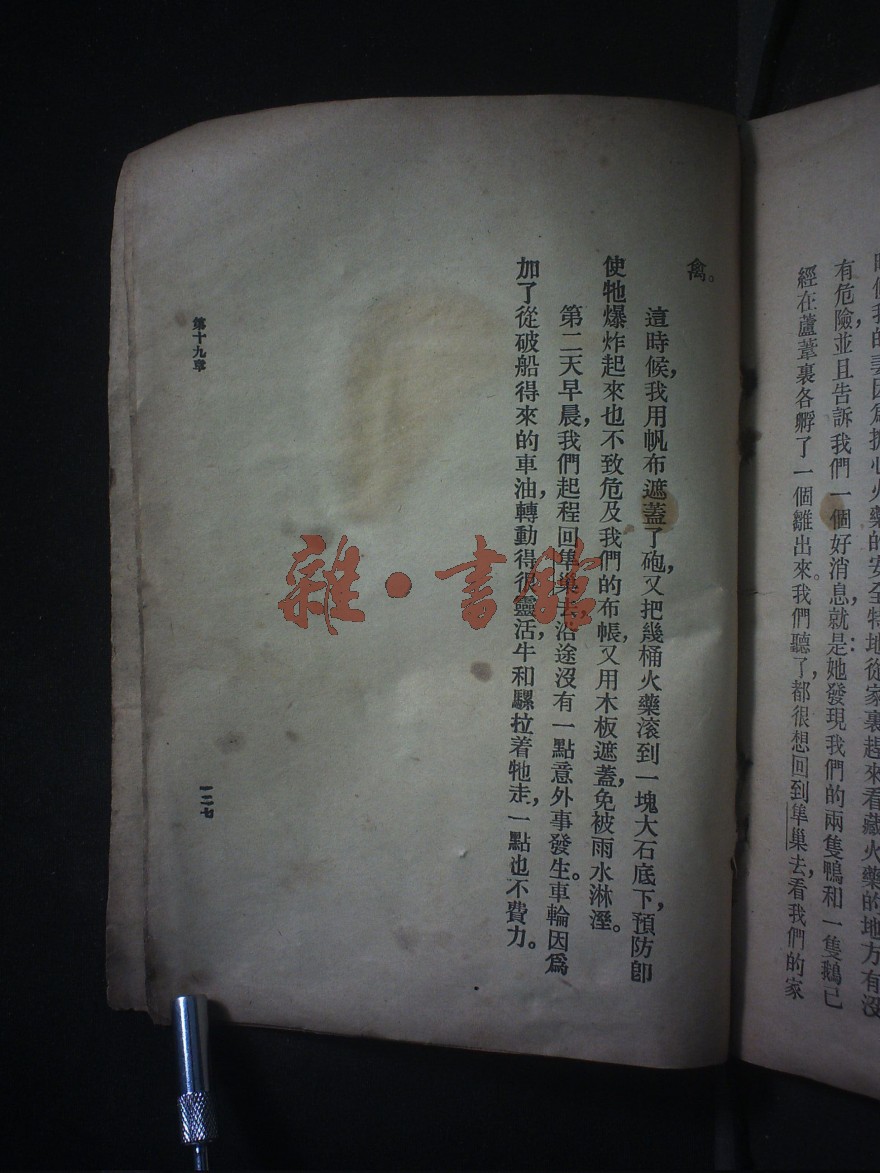 有危險,並且告訴我們一個好消息,就是:她發現我們的兩隻鴨和一隻鵝已
經在蘆葦裏各孵了一個雛出來。我們聽了,都很想回到隼巢去,看我們的家
禽。
這時候,我用帆布遮蓋了砲,又把幾桶火藥滾到一塊大石底下,預防卽
使牠爆炸起來也不致危及我們的布帳,又用木板遮蓋,免被雨水淋溼。
第二天早晨,我們起程回隼巢去,沿途沒有一點意外事發生。車輪因爲
加了從破船得來的車油,轉動得很靈活,牛和騾拉着牠走,一點也不費力。
第十九章
一二七
雜·書館